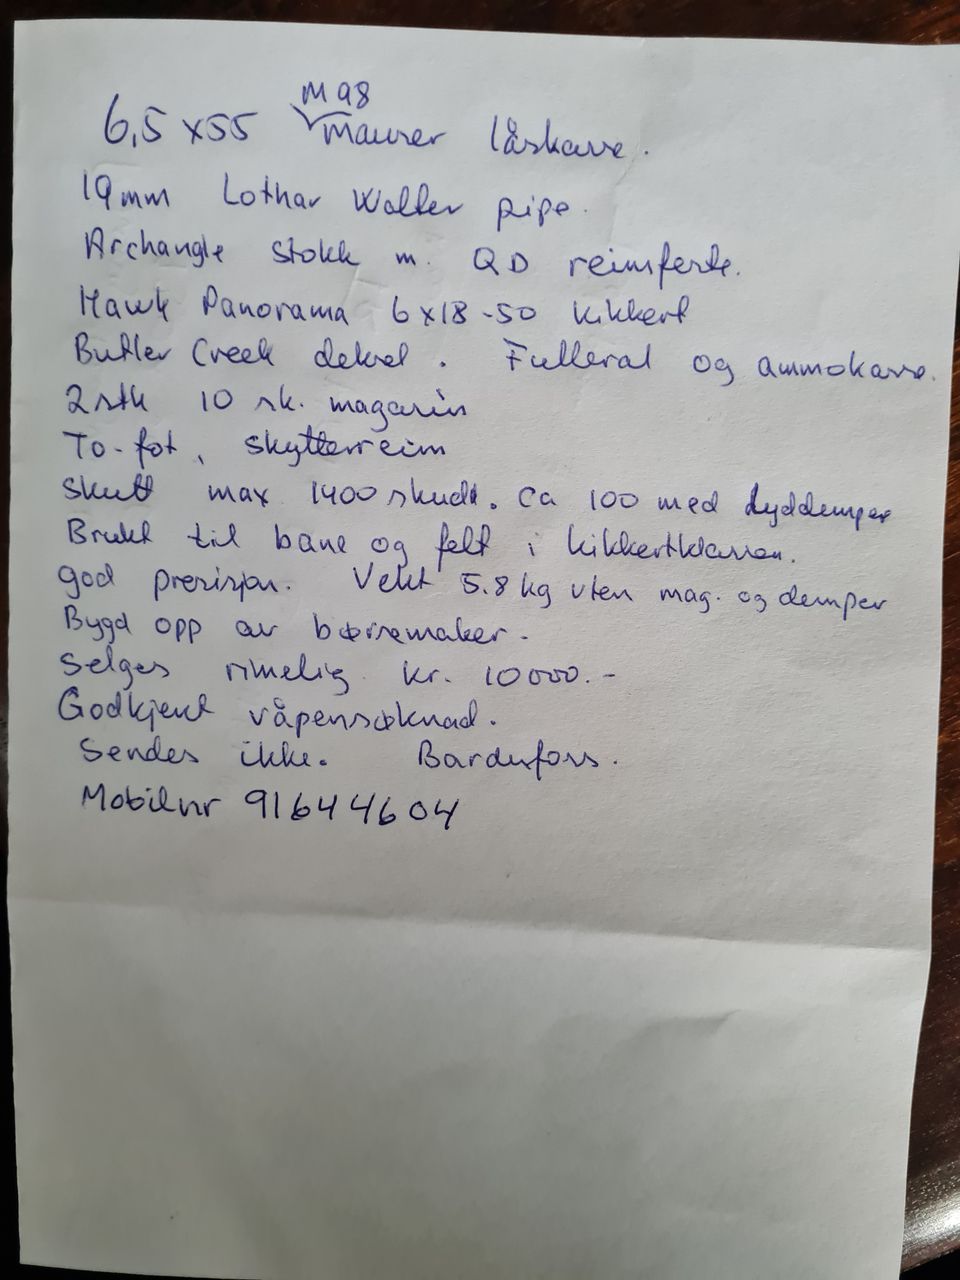 6,5 x 55 M98 mauser låskasse.
19mm Lothar Walter pipe.
Archangle stokk m. QD reimfeste.
Hawk Panorama 6x18-50 kikkert
Butler Creek deksel. Futteral og ammokasse.
2stk 10 sk. magasin
To-fot, skytterreim
Skutt max 1400 skudd. ca 100 med lyddemper
Brukt til bane og felt i kikkertklassen.
god presisjon. Vekt 5.8 kg uten mag. og demper
Bygd opp av børsemaker.
Selges rimelig kr. 10000.-
Godkjent våpensøknad.
Sendes ikke. Bardufoss.
Mobilnr 91644604